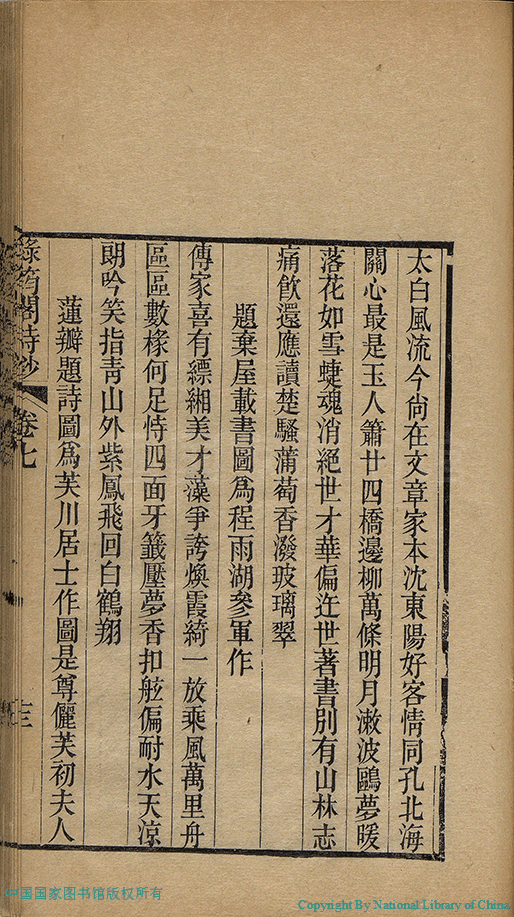 太白風流今尙在文章家本沈東陽好客情同孔北海
關心最是玉人簫廿四橋邊柳萬條明月漱波鷗夢暖
落花如雪蜨魂消絕世才華偏迕世著書別有山林志
痛飲還應讀楚騷蒲萄香潑玻璃翠
題棄屋載書圖爲程雨湖參軍作
傳家喜有縹緗美才藻爭誇煥霞綺一放乘風萬里舟
區區數椽何足恃四面牙籤壓夢香扣舷偏耐水天涼
朗吟笑指靑山外紫鳳飛回白鶴翔
蓮瓣題詩圖爲芙川居士作圖是尊儷芙初夫人
筠閣詩鈔 卷七
十三
中国国家图书馆版权所有
Copyright By National Library of China